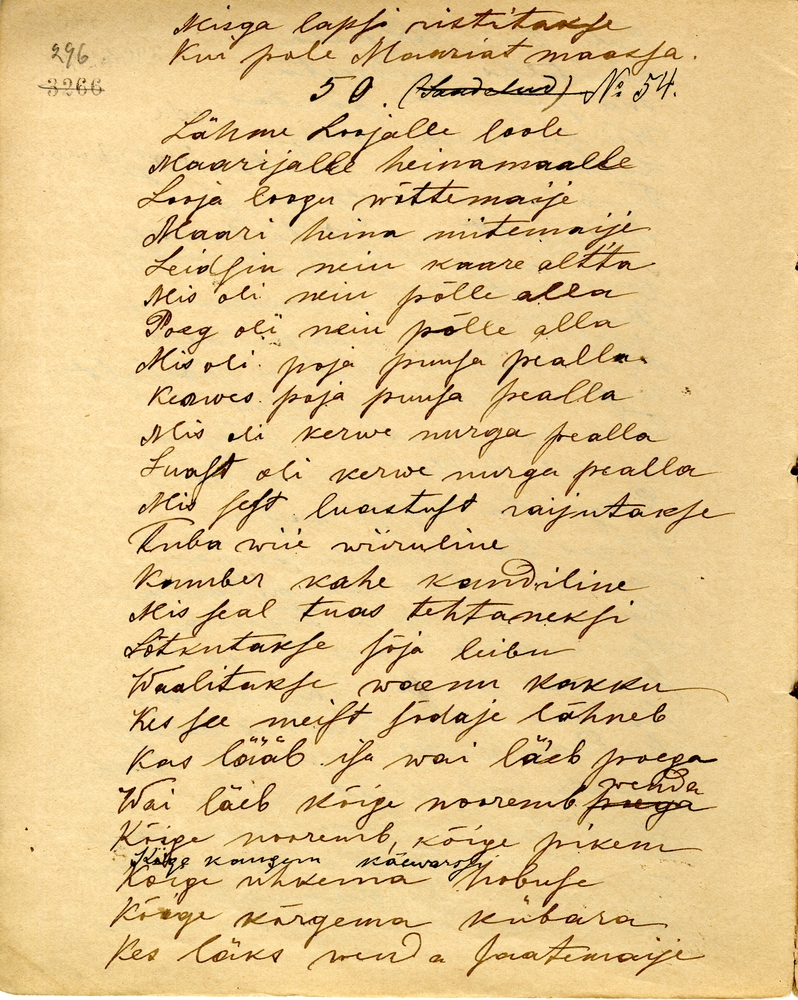 Misga lapsi ristitakse
Kui pole Maariat maassa.
296
3266
50. (Laadelud) № 54.
Lähme Loojalle loole
Maarijalle heinamaalle
Looja loogu wõttemaije
Maari heina niitemaije
Leidsin nein kaare altta
Mis oli nein põlle alla
Poeg oli nein põlle alla
Mis oli poja puusa pealla
Kerwes poja puusa pealla
Mis oli kerwe nurga pealla
Luast oli kerwe nurga pealla
Mis sest luastust raijutakse
Tuba wiie wiiruline
Kamber kahe kandiline
Mis seal tuas tehtaneksi
Sõtkutakse sõja leibu
Waalitakse waenu kakku
Kes see meist sõdaje lähneb
Kas lääb isa wai läeb poega
Wai läeb kõige nooremb poega wenda
Kõige nooremb, kõige pikem
Kõige kangem käewarssi
Kõige uhkema hobuse
Kõige kõrgema kübara
Kes läks wenda saatemaije